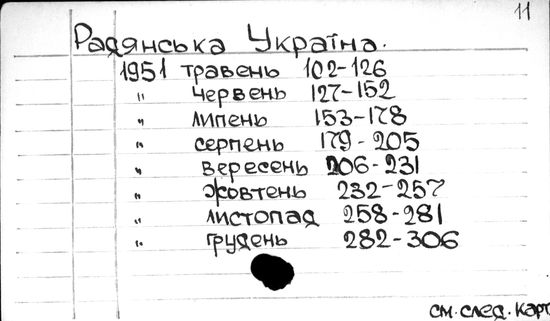 11
Радянська Україна.
1951 травень 102-126
" червень 127-152
" липень 153-178
" серпень 179-205
" вересень 206-231
" жовтень 232-257
" листопад 258-281
" грудень 282-306
см. след. карт